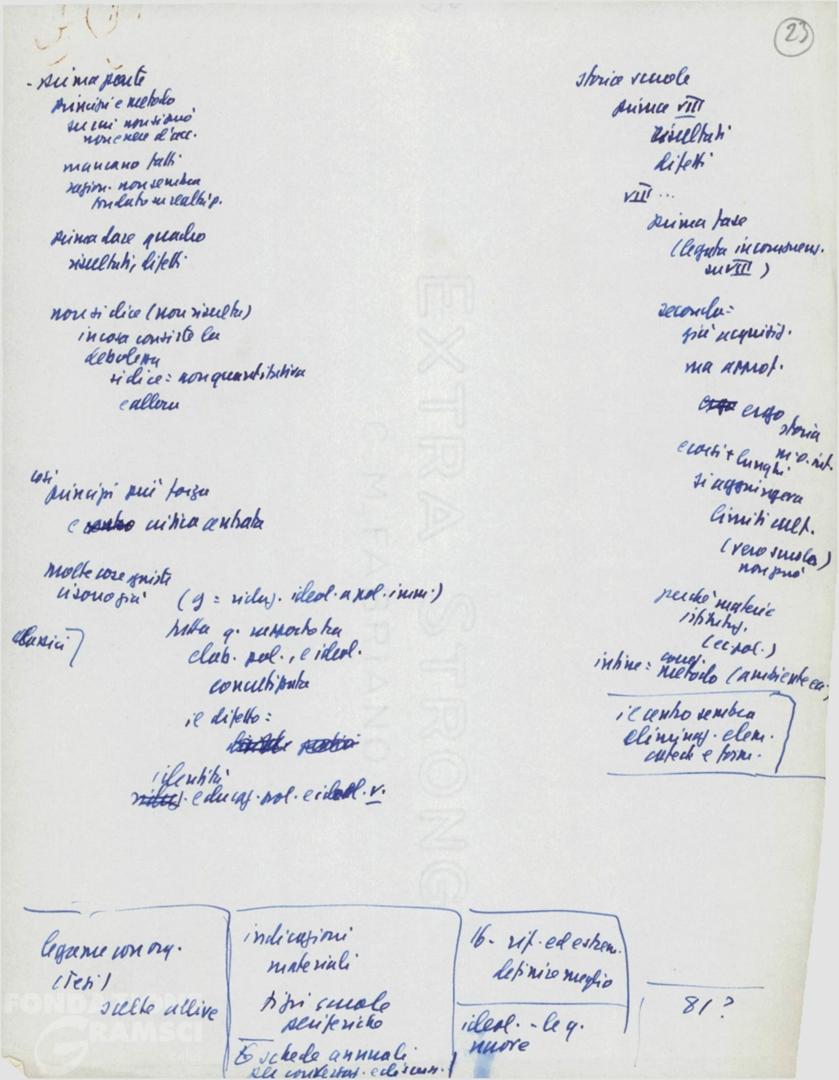 23
- prima parte
principi e metodo
su cui non si può
non essere d'acc.
mancano fatti
ragion. non sembra
fondato su realtà p.
prima dare quadro
risultati, difetti
non si dice (non risulta)
in cosa consiste la
debolezza
si dice = non quantitativa
e allora
così
principi più forza
e critica centrata
molte cose giuste
ci sono già
(g = riduz. ideol. a pol. imm.)
classici
tutta q. rapporto tra
elab. pol., e ideol.
concentrata
il difetto:
identità
educaz. pol. e ideol. v.
storia scuole
prima VIII
risultati
difetti
VIII ...
prima fase
(legata
su VIII)
seconda =
più acquisiz.
ma approf.
ergo
storia
m. o. int.
e corsi + lunghi
si aggiungeva
limiti cult.
(vero scuola)
non può
perché materie
istituz.
(ec. pol.)
infine = metodo (ambiente ecc.)
il centro sembra
eliminaz. elem.
catech. e form.
legame con org.
(Tesi)
scelte allievi
indicazioni
materiali
tipi scuole
periferiche
schede annuali
per
16 - rif. ed estrem.
definire meglio
ideol. - leg.
nuove
81?
EXTRA STRONG
C.M. FABRIANO
FONDAZIONE
GRAMSCI